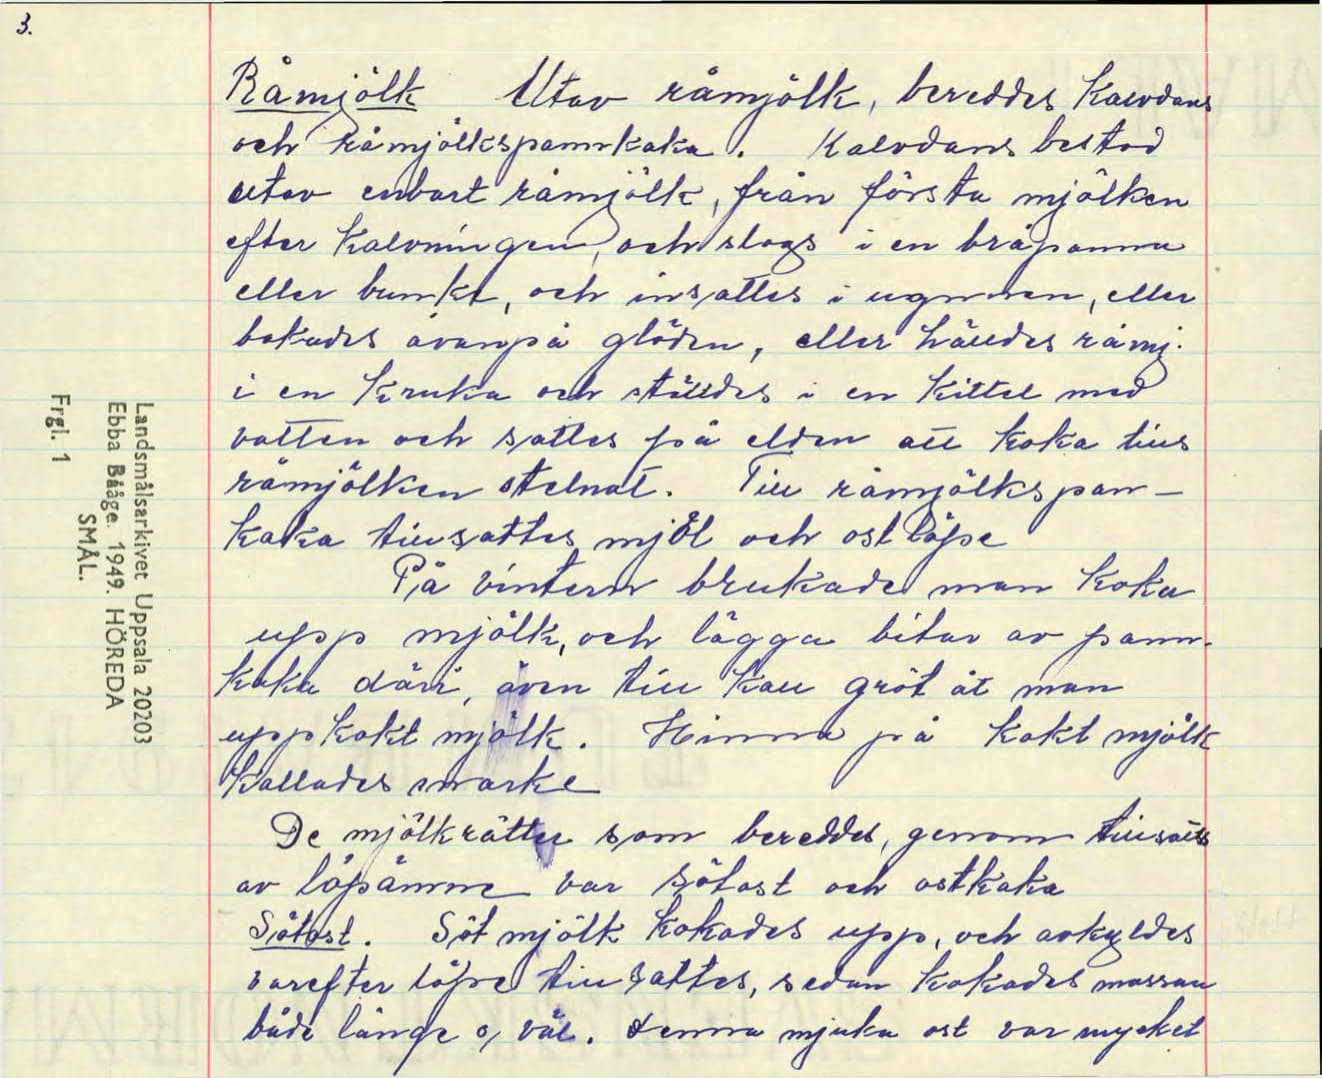 3.
Råmjölk Utav råmjölk, bereddes Kalvdans
och råmjölkspannkaka. Kalvdans bestod
utav enbart råmjölk, från första mjölken
efter Kalvningen, och slogs i en bråpanna
eller bunke, och insattes i ugnnen, eller
bakades ovanpå glöden, eller hälldes råmj.
i en Kruka och ställdes i en Kittel med
vatten och sattes på elden att Koka tills
råmjölken stelnat. Till råmjölkspan-
kaka tillsattes mjöl och ostlöpe
På vintern brukade man Koka
upp mjölk, och lägga bitar av pann-
kaka däri, även till Kall gröt åt man
uppkokt mjölk. Hinna på Kokt mjölk
Kallades snarke
De mjölkrätter som bereddes, genom tillsats
av löpämne var Sötost och ostkaka
Sötost. Söt mjölk Kokades upp, och avkyldes
varefter löpe tillsattes, sedan Kokades massan
både länge o, väl. denna mjuka ost var mycket
Landsmålsarkivet Uppsala 20203
Ebba Bååge. 1949. HÖREDA
SMÅL.
Frgl. 1